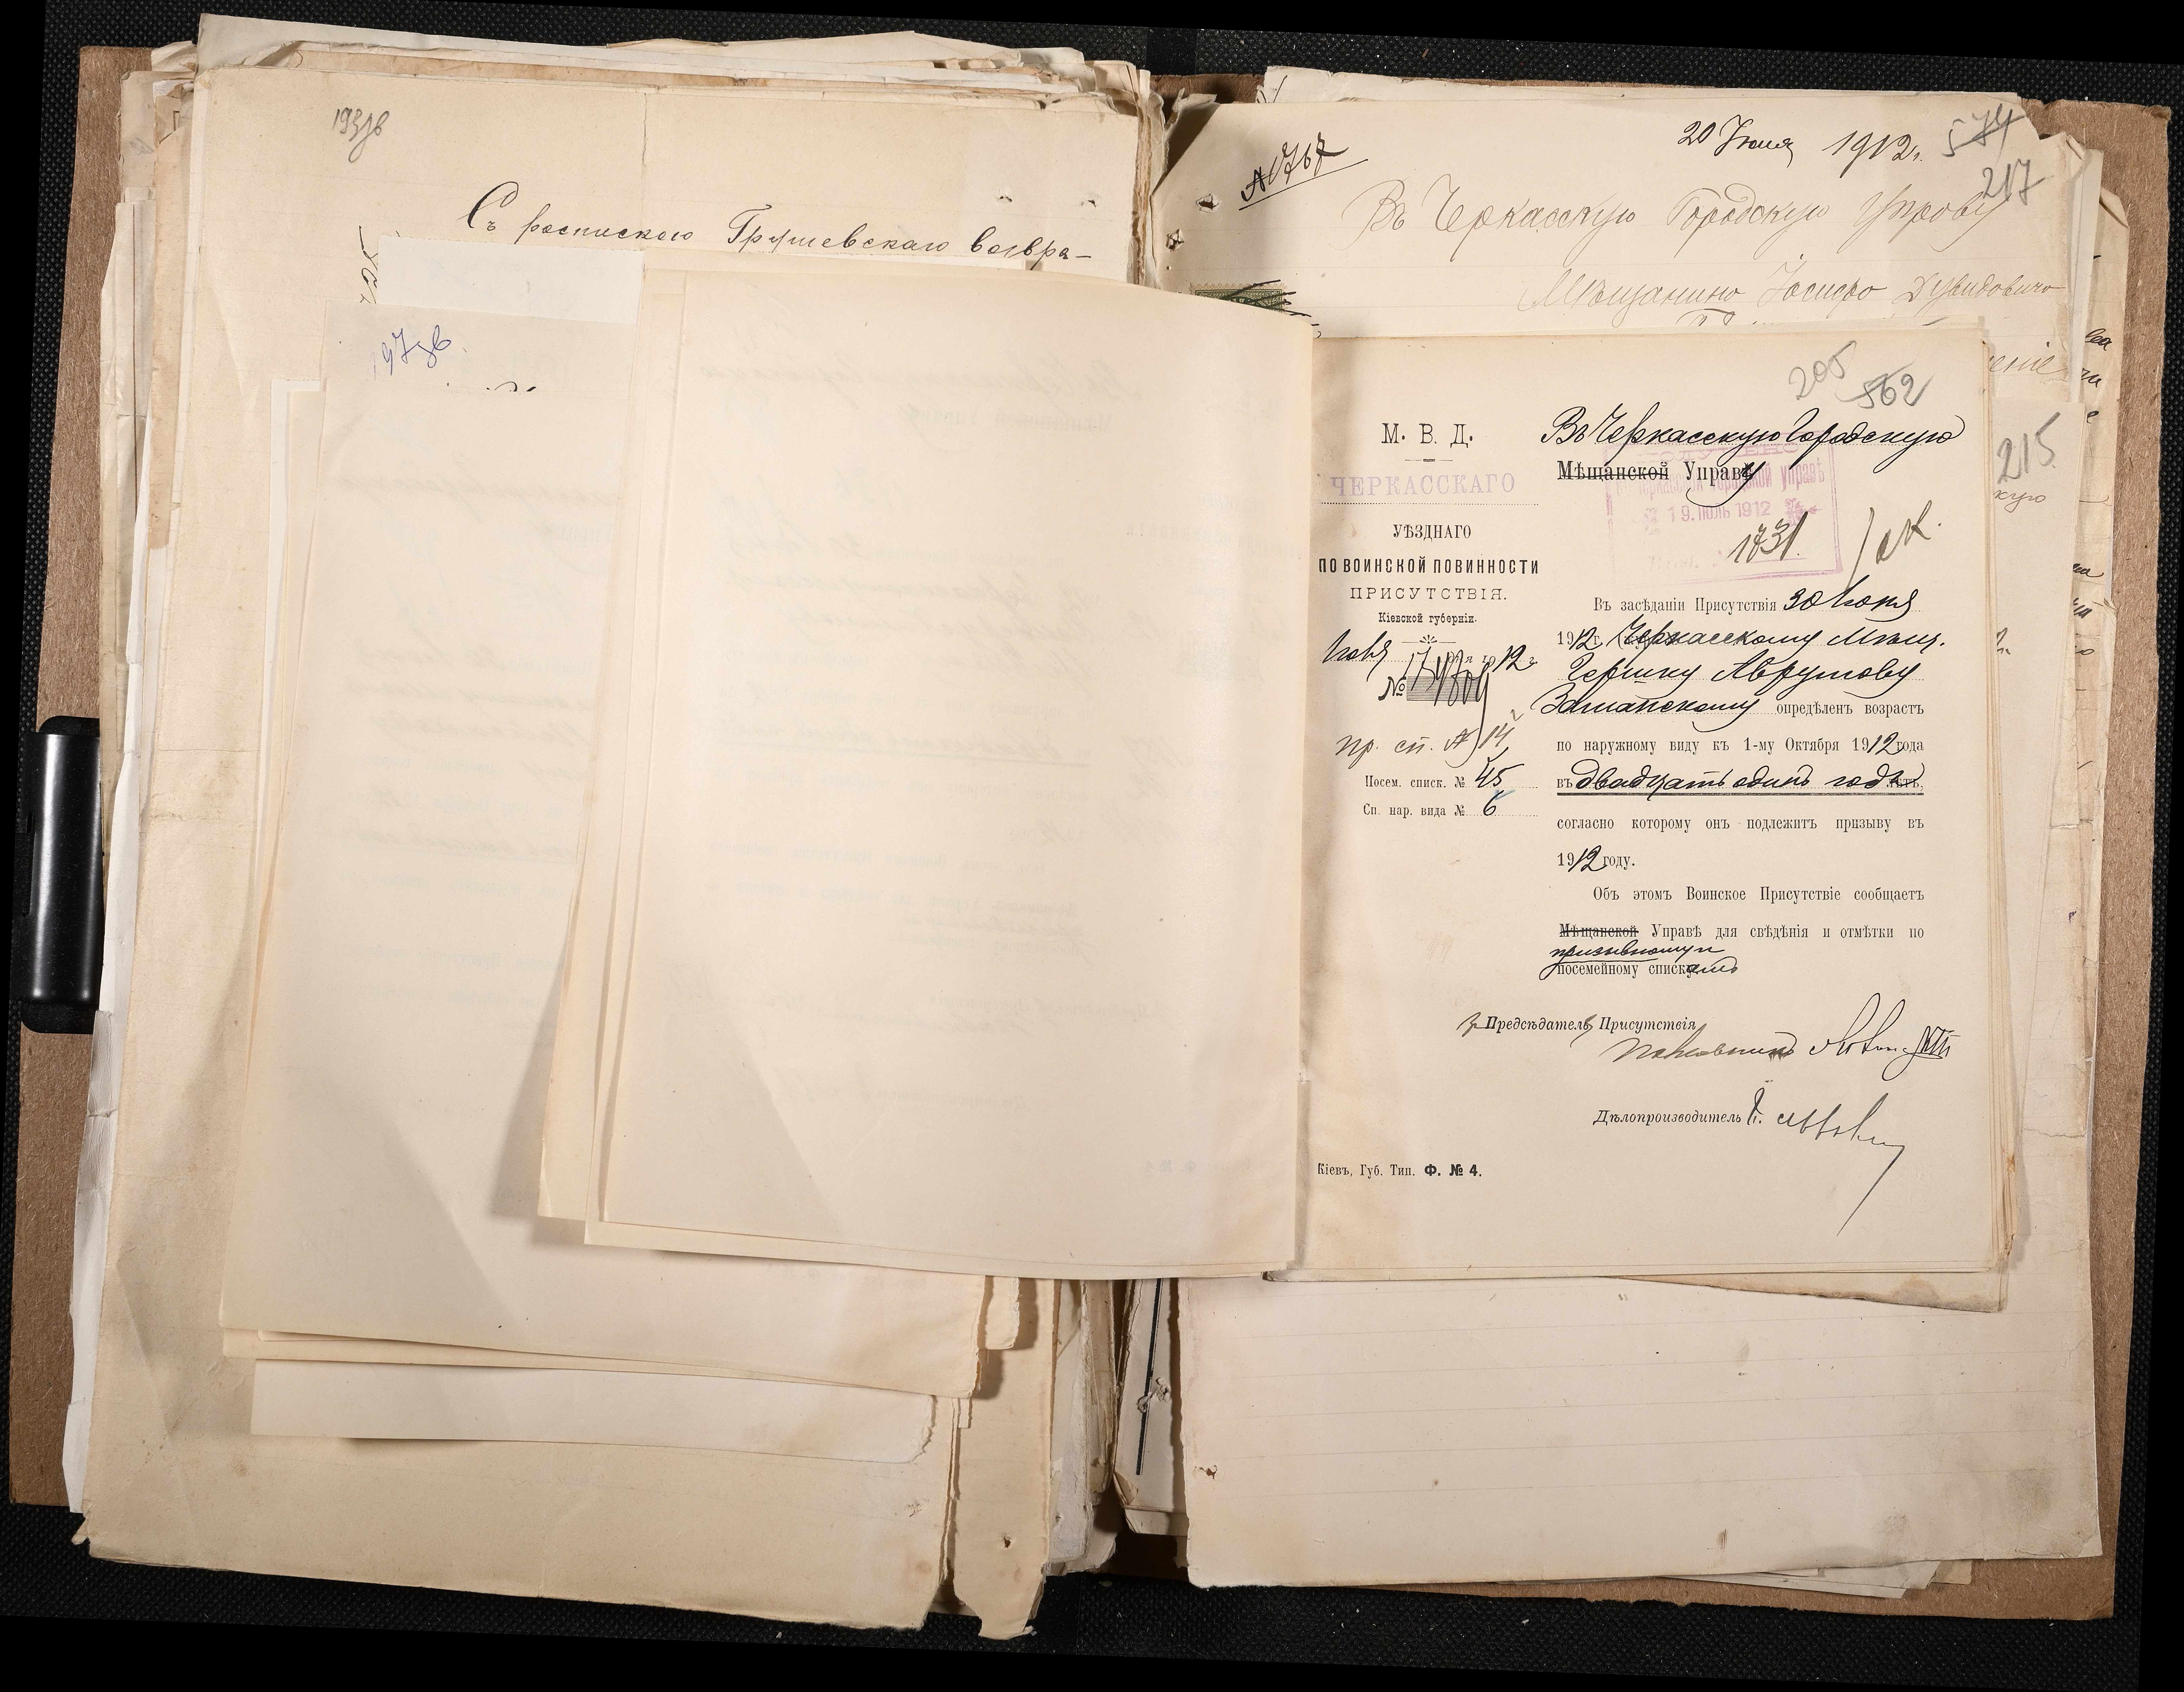 193зв
Съ роспискою Грушевскаго возвра-
197зв.
20 Іюля 1912 г.
574
217
№ 1767
Въ Черкасскую Городскую Управу
Мѣщанина Іосифа Дувидовича
215
кую
205
562
М. В. Д.
ЧЕРКАССКАГО
УѢЗДНАГО
ПО ВОИНСКОЙ ПОВИННОСТИ
ПРИСУТСТВІЯ.
Кіевской губерніи.
Іюля 17 дня 1912 г.
№
пр. сп. № 14
Посем. списк. № 45
Сп. нар. вида № 6
Въ Черкасскую Городскую
Мѣщанской Управу
Черкасской Городской Управѣ
19. ІЮЛЬ 1912
1731.
Въ засѣданіи Присутствія 30 Іюня
1912 г. Черкасскому Мѣщ.
Гершку Аврумову
Заславскому опредѣленъ возрастъ
по наружному виду къ 1-му Октября 1912 года
въ двадцать одинъ годъ лѣтъ,
согласно которому онъ подлежитъ призыву въ
1912 году.
Объ этомъ Воинское Присутствіе сообщаетъ
Мѣщанской Управѣ для свѣдѣнія и отмѣтки по
призывному и
посемейному спискамъ
Предсѣдатель Присутствія
Полковникъ
Дѣлопроизводитель
Кіевъ, Губ. Тип. Ф. № 4.